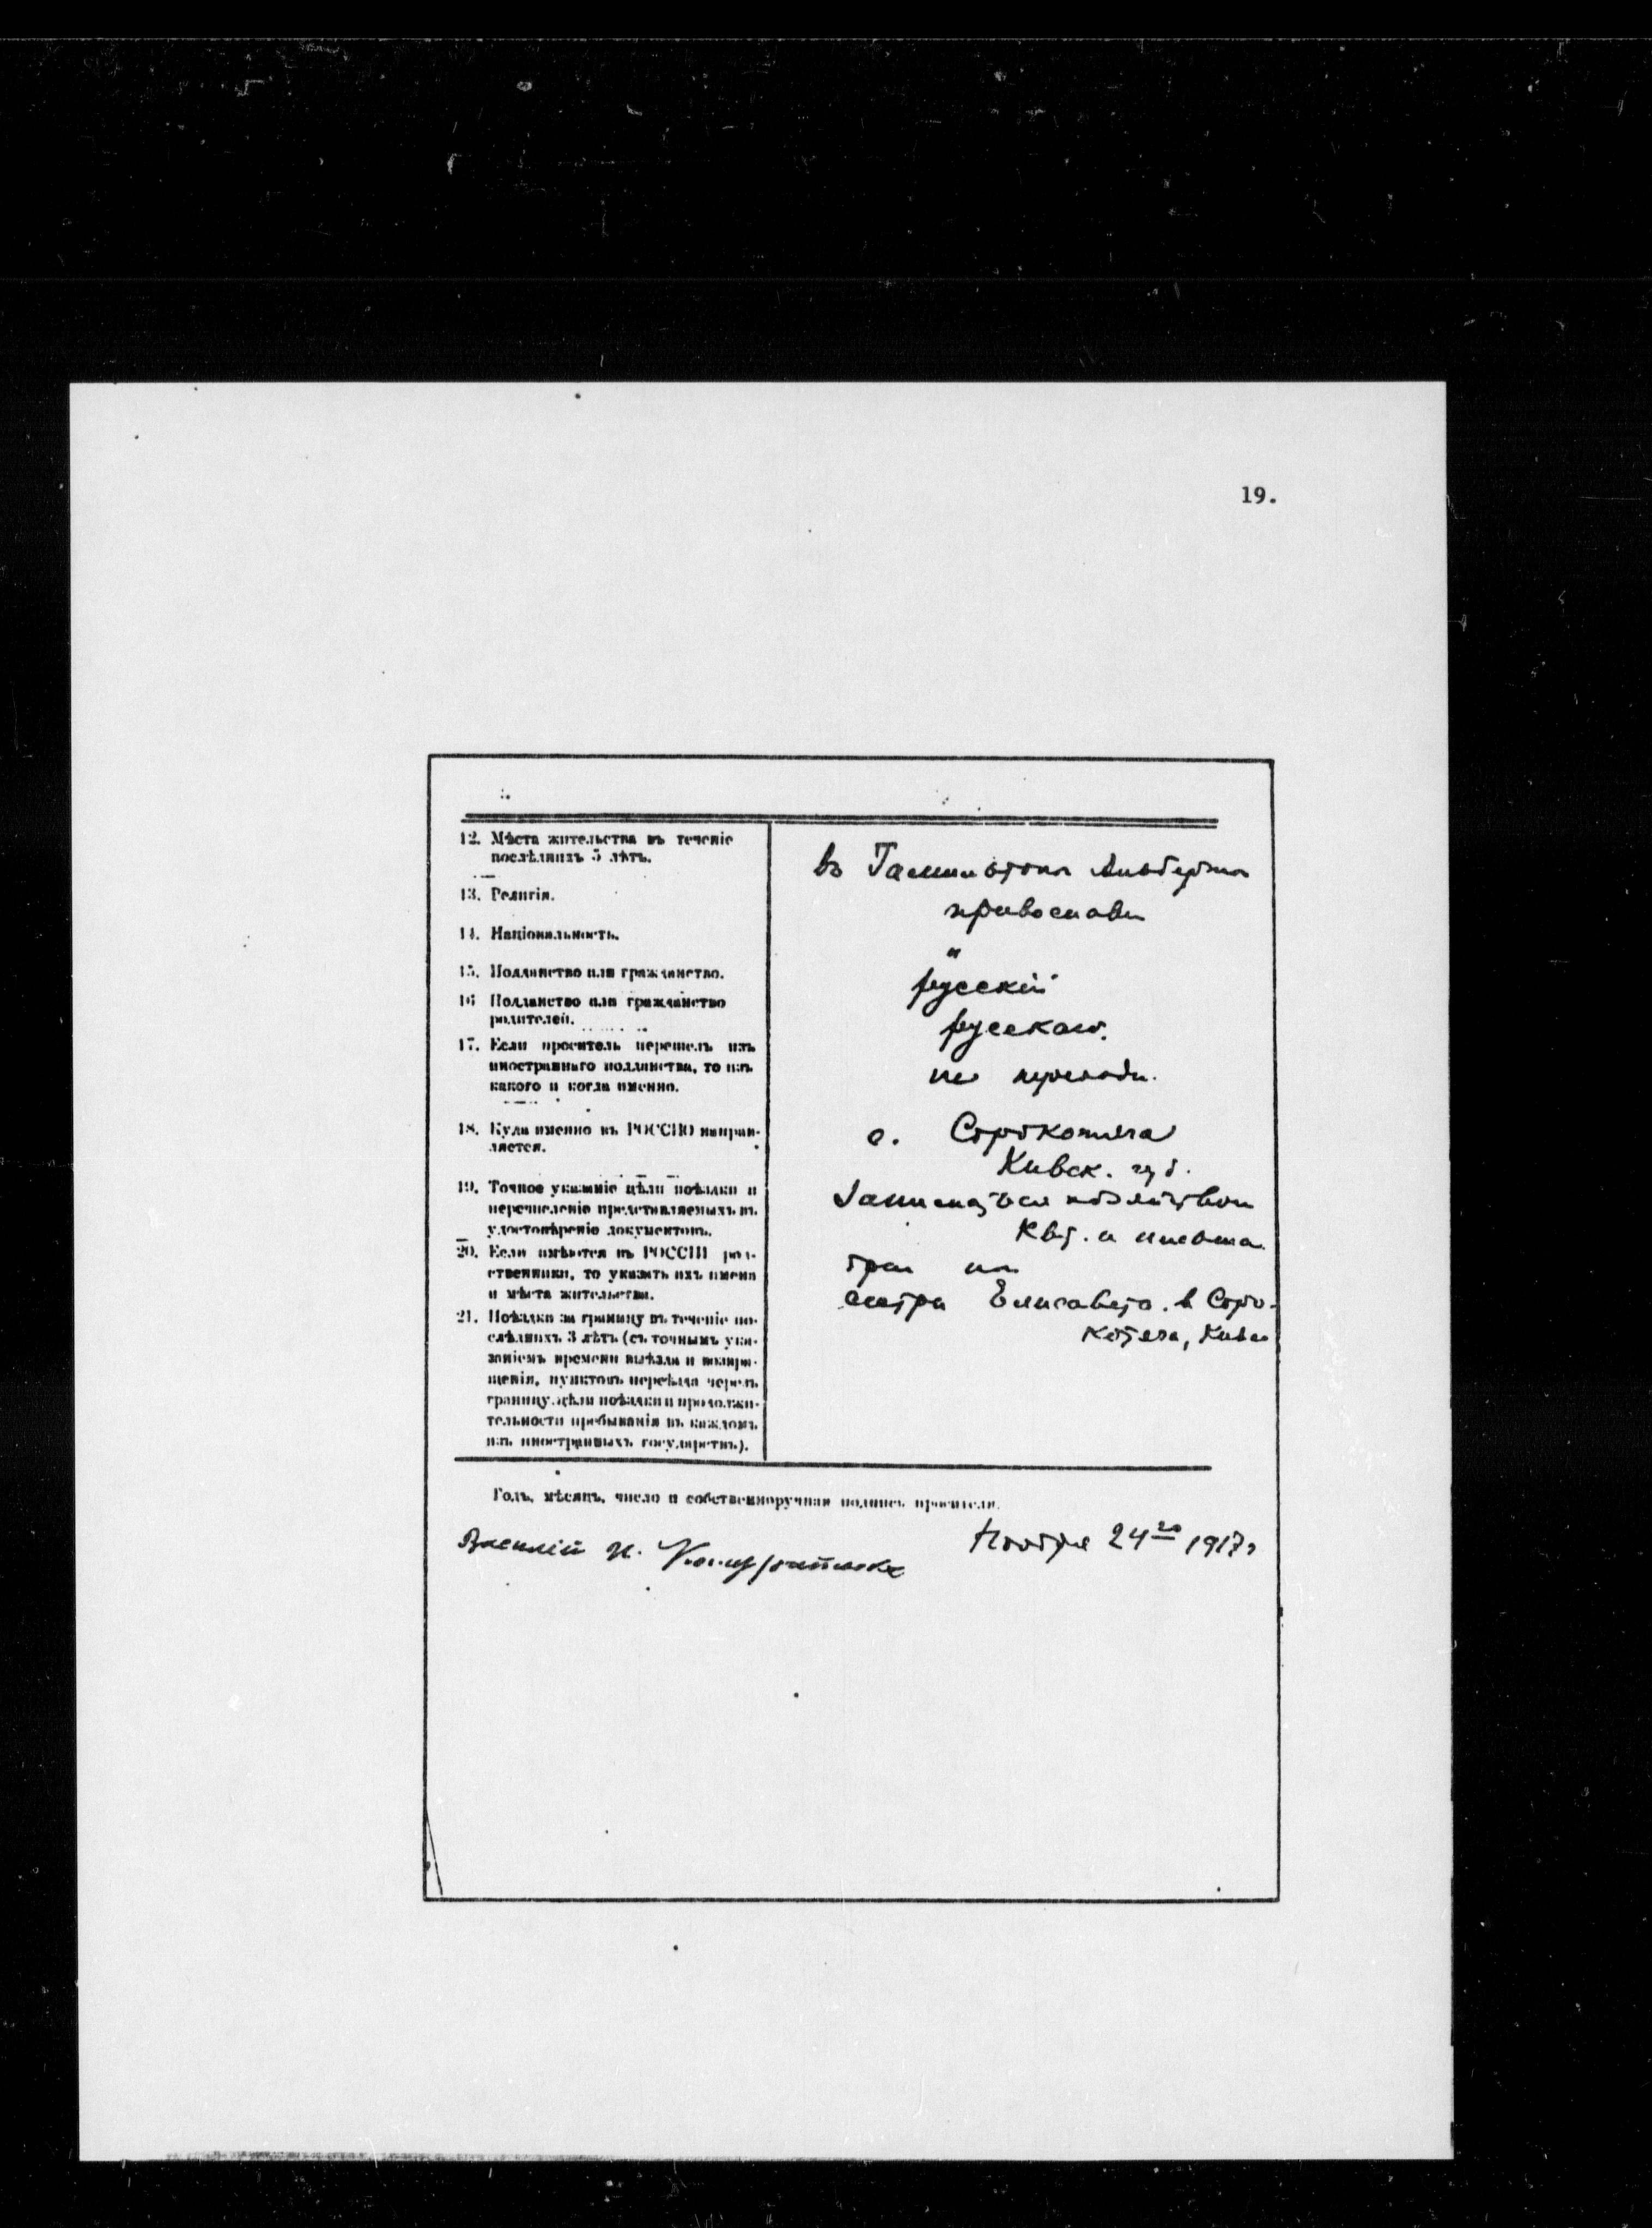 19.
12. Мѣста жительства въ теченіе
послѣднихъ 5 лѣтъ.
въ Альберта
13. Религія.
православн
14. Національность.
"
15. Подданство или гражданство.
русскій
16 Подданство или гражданство
родителей.
русскаго.
17. Если проситель перешелъ изъ
иностраннаго подданства, то изъ
какого и когда именно.
не переходи.
18. Куда именно въ РОССІЮ направ-
ляется.
с. Сорокотяга
Киевск. губ.
19. Точное указаніе цѣли поѣздки и
перечисленіе представляемыхъ въ
удостовѣреніе документовъ.
хозяйством
Квт. и письма
20. Если имѣются въ РОССІИ род-
ственники, то указать ихъ имена
и мѣста жительства.
сестра Елисавета. в Соро-
котяга, Киевс
21. Поѣздки за границу въ теченіе по-
слѣднихъ 3 лѣтъ (съ точнымъ ука-
заніемъ времени выѣзда и возвра-
щенія, пунктовъ переѣзда черезъ
границу, цѣли поѣздки и продолжи-
тельности пребыванія въ каждомъ
изъ иностранныхъ государствъ).
Годъ, мѣсяцъ, число и собственноручная подпись просителя.
Василій Н.
Ноября 24го 1917г